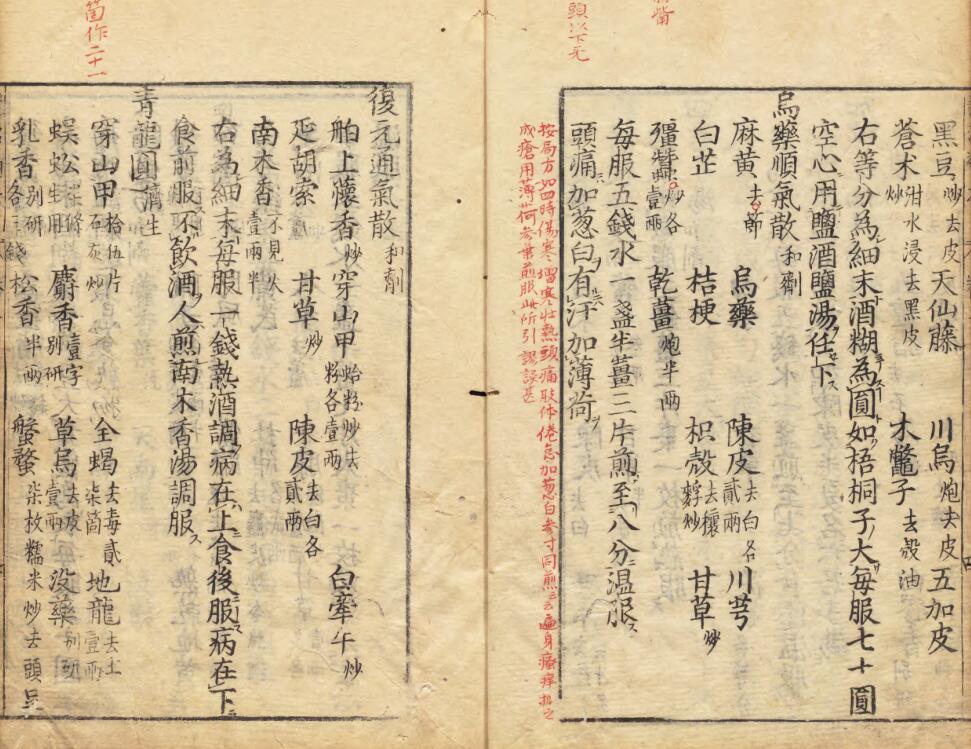 觜
頭以下无
黑豆炒去皮天仙藤 川烏炮去皮五加皮
蒼术泔水浸去黑皮炒 木鱉子去殻油
右等分為細末酒糊為圓如梧桐子大每服七十圓
空心用鹽酒鹽湯任下
烏藥順氣散和劑
麻黄去節 烏藥 陳皮去白各貳兩 川芎
白芷 桔梗 枳殻去穰麩炒 甘草炒
殭蠶炒各壹兩 乾薑炮半兩
每服五錢水一盞半薑三片煎至八分温服
頭痛加葱白有汗加薄荷
按局方如四時傷寒憎寒壯熱頭痛肢体倦怠加葱白参寸同煎云云遍身瘙痒抓之
成瘡用薄荷参葉煎服此所引謬誤甚
箇作二十一
復元通氣散和劑
舶上懷香炒穿山甲蛤粉炒去粉各壹兩 白牽牛炒
延胡索 甘草炒 陳皮去白各貳兩
南木香不見火壹兩半
右為細末每服一錢熱酒調病在上食後服病在下
食前服不飲酒人煎南木香湯調服
青龍圓濟生
穿山甲拾伍片石灰炒 全蝎去毒貳柒箇 地龍去土壹兩
蜈蚣生用 麝香壹字别研 草烏去皮壹兩 没藥别研
乳香别研各三錢松香半兩 蟹蝥柒枚糯米炒去頭足